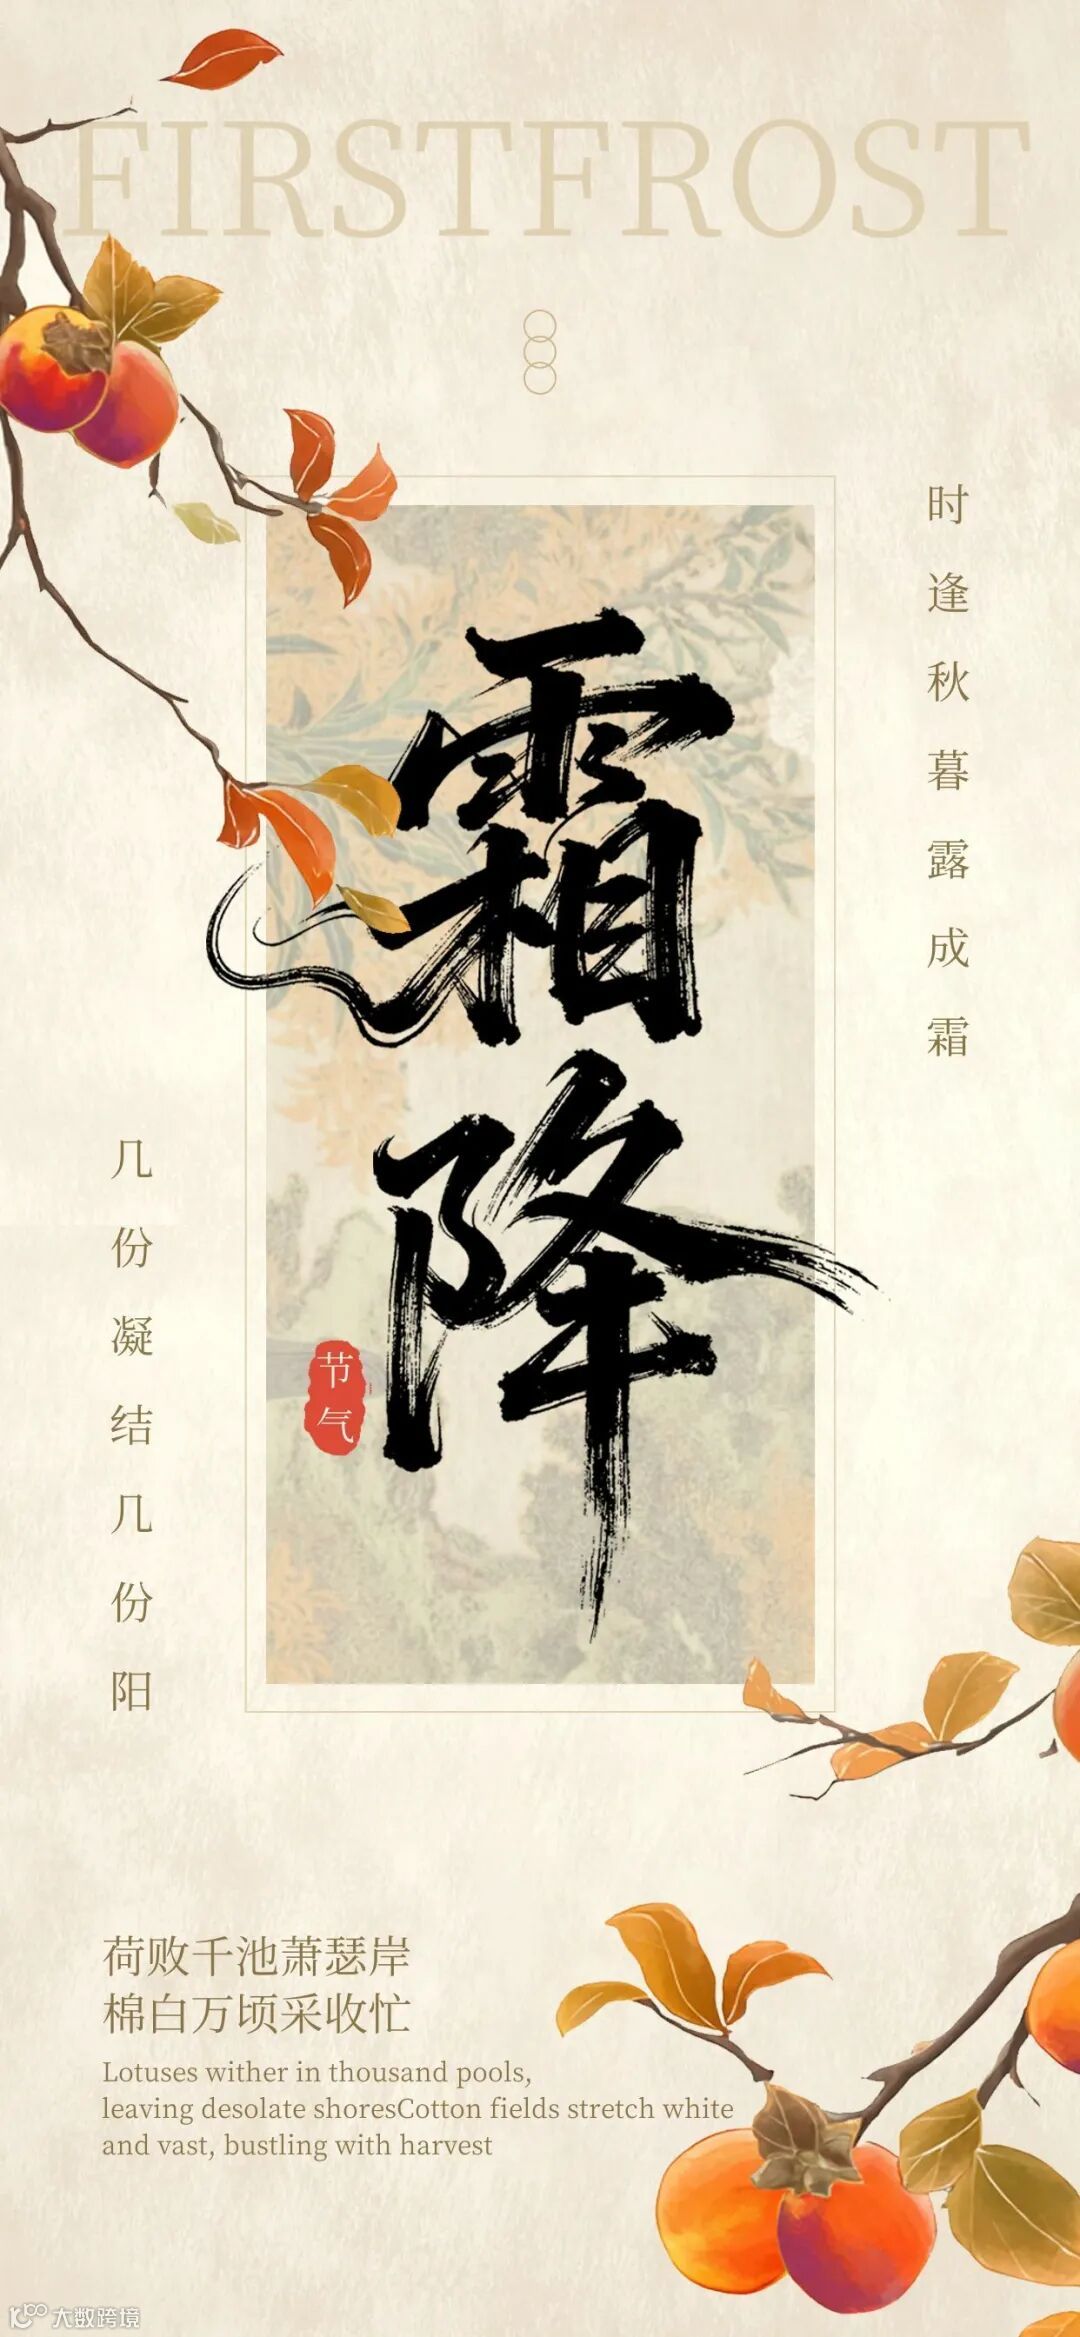 FIRSTFROST
时逢秋暮露成霜
霜降
节气
几份凝结几份阳
荷败千池萧瑟岸
棉白万顷采收忙
Lotuses wither in thousand pools,
leaving desolate shoresCotton fields stretch white
and vast, bustling with harvest
大数跨境